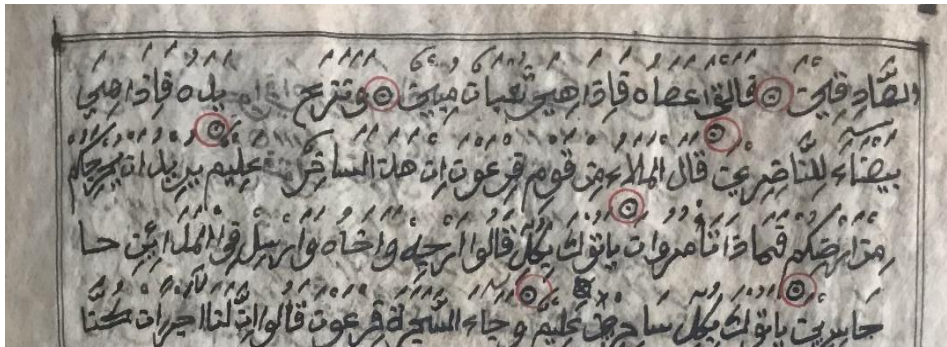 الصَّادِقِين قالقوا عصاه فاذا هي ثعبان مبين ونزع يده فاذا هي
بيضاء للنّاضرين قال الملاء من قوم فرعون ان هذا الساحر عليم يريد ان يخرجكم
من ارضكم فما ذا تامرون ياتوك بكل قالوا ارجه واخاه وارسل في المدائن حا
حاشرين ياتوك بكل ساحر عليم وجاء السّحرة فرعون قالوا انّ لنا لاجرا ان كنّا